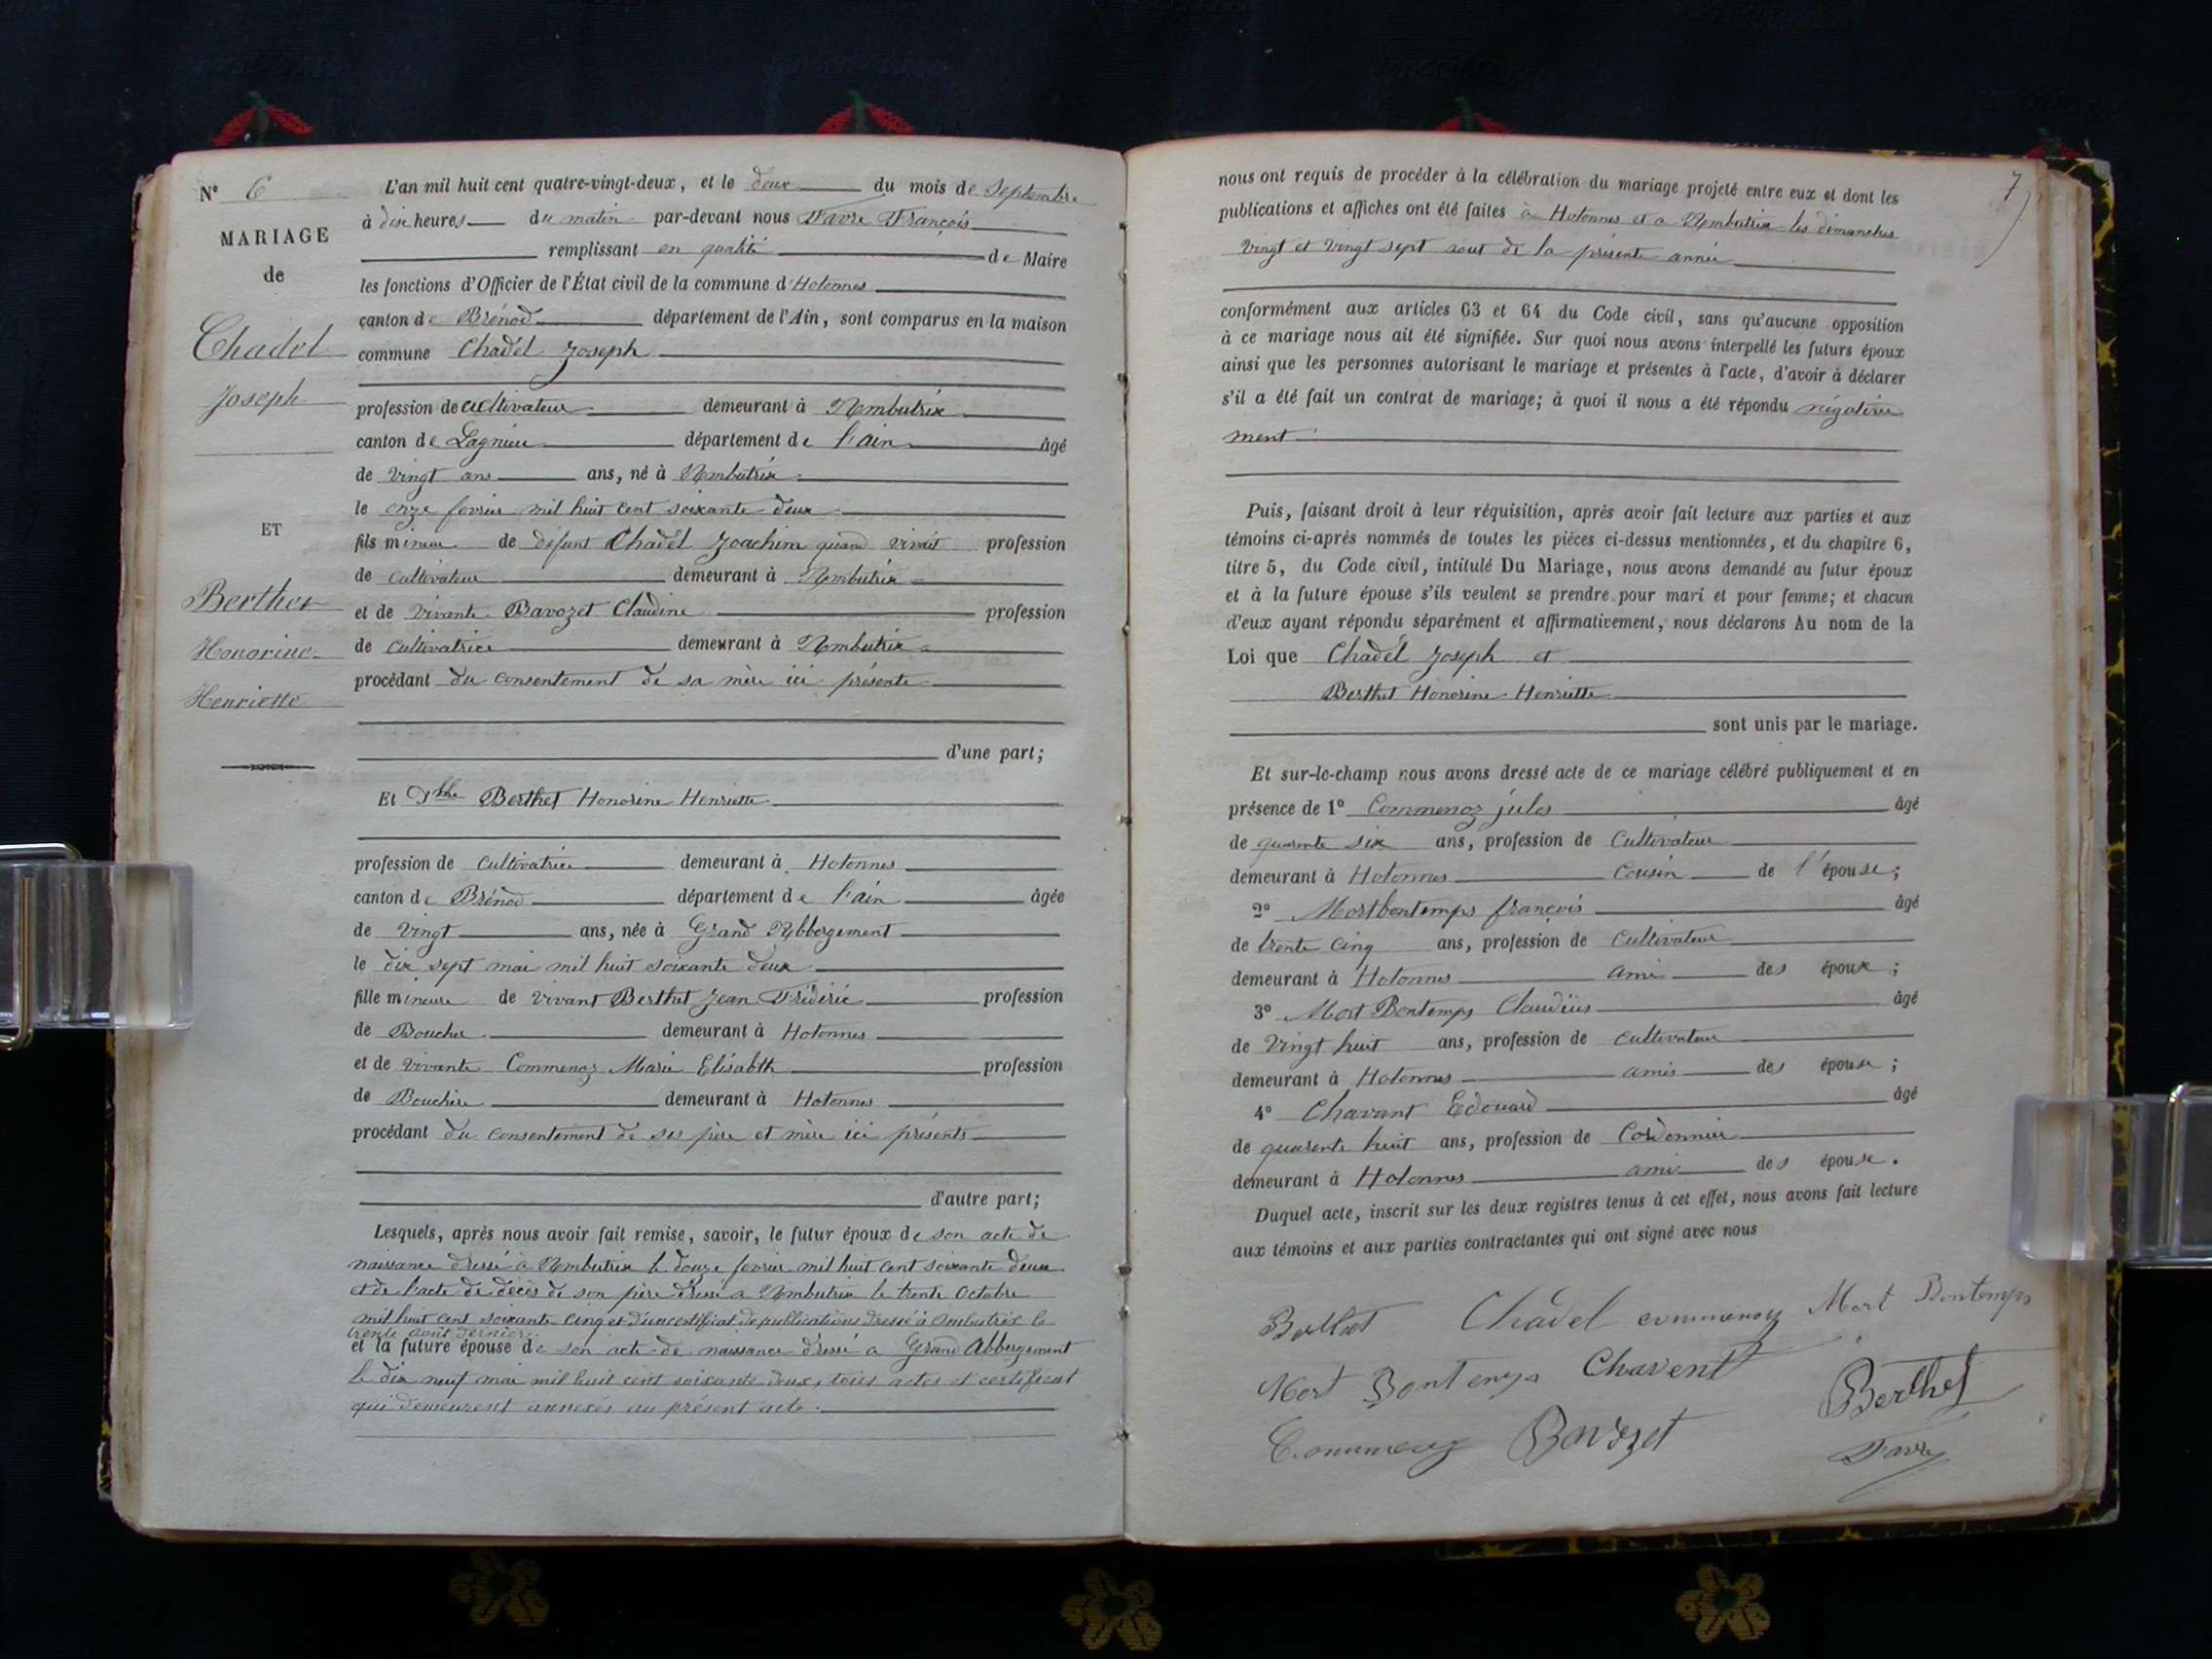 N° 6
MARIAGE
de
Chadel
Joseph
ET
Berthet
Honorine
Henriette
L'an mil huit cent quatre-vingt-deux, et le deux du mois de Septembre
à dix heures du matin par-devant nous Favre François
remplissant en qualité de Maire
les fonctions d'Officier de l'État civil de la commune d'Hotonnes
canton de Brénod département de l'Ain, sont comparus en la maison
commune Chadel Joseph
profession de cultivateur demeurant à Ambutrix
canton de Lagnieu département de l'ain âgé
de vingt ans ans, né à Ambutrix
le onze fevrier mil huit cent soixante deux
fils mineur de défunt Chadel Joachim quand vivait profession
de cultivateur demeurant à Ambutrix
et de vivante Bavozet Claudine profession
de cultivatrice demeurant à Ambutrix
procédant du consentement de sa mère ici présente
d'une part;
Et Dlle Berthet Honorine Henriette
profession de cultivatrice demeurant à Hotonnes
canton de Brénod département de l'ain âgée
de vingt ans, née à Grand Abbergement
le dix sept mai mil huit soixante deux
fille mineure de vivant Berthet Jean Frédéric profession
de Boucher demeurant à Hotonnes
et de vivante Commenoz Marie Elisabth profession
de Bouchère demeurant à Hotonnes
procédant du consentement de ses père et mère ici présents
d'autre part;
Lesquels, après nous avoir fait remise, savoir, le futur époux de son acte de
naissance dressé à Ambutrix le douze fevrier mil huit cent soixante deux
et de l'acte de décès de son père dressé a Ambutrix le trente Octobre
mil huit cent soixante cinq et d'un certificat de publications dressé à Ambutrix le
trente août dernier
et la future épouse de son acte de naissance dressé a Grand Abbergement
le dix neuf mai mil huit cent soixante deux, tous actes et certificat
qui demeurent annexés au présent acte.
7
nous ont requis de procéder à la célébration du mariage projeté entre eux et dont les
publications et affiches ont été faites à Hotonnes et a Ambutrix les dimanches
vingt et vingt sept aout de la présente année
conformément aux articles 63 et 64 du Code civil, sans qu'aucune opposition
à ce mariage nous ait été signifiée. Sur quoi nous avons interpellé les futurs époux
ainsi que les personnes autorisant le mariage et présentes à l'acte, d'avoir à déclarer
s'il a été fait un contrat de mariage; à quoi il nous a été répondu négative
ment
Puis, faisant droit à leur réquisition, après avoir fait lecture aux parties et aux
témoins ci-après nommés de toutes les pièces ci-dessus mentionnées, et du chapitre 6,
titre 5, du Code civil, intitulé Du Mariage, nous avons demandé au futur époux
et à la future épouse s'ils veulent se prendre pour mari et pour femme; et chacun
d'eux ayant répondu séparément et affirmativement, nous déclarons Au nom de la
Loi que Chadel Joseph et
Berthet Honorine Henriette
sont unis par le mariage.
Et sur-le-champ nous avons dressé acte de ce mariage célébré publiquement et en
présence de 1° Commenoz jules âgé
de quarente six ans, profession de Cultivateur
demeurant à Hotonnes Cousin de l'épouse;
2° Mortbontemps françois âgé
de trente cinq ans, profession de Cultivateur
demeurant à Hotonnes ami des époux;
3° Mort Bontemps Claudius âgé
de vingt huit ans, profession de cultivateur
demeurant à Hotonnes amis des épouse;
4° Chavant Edouard âgé
de quarente huit ans, profession de Cordonnier
demeurant à Hotonnes ami des épouse.
Duquel acte, inscrit sur les deux registres tenus à cet effet, nous avons fait lecture
aux témoins et aux parties contractantes qui ont signé avec nous
Berthet Chadel commenoz Mort Bontemps
Mort Bontemps Chavent Berthet
Commenoz Bavozet Favre